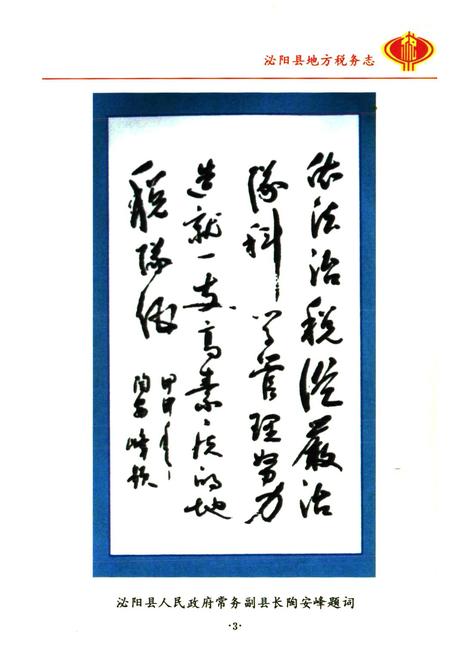 泌阳县地方税务志
依法治税从严治
队科学管理努力
造就一支高素质的地
税队伍
甲申年
陶安峰题
泌阳县人民政府常务副县长陶安峰题词
·3·